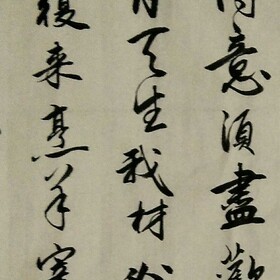 得意須盡歡
月天生我材必
復来烹羊宰